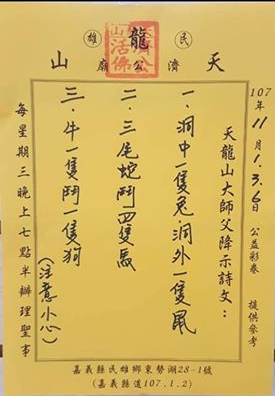 民雄
天龍山
濟公廟
107年11月1.3.6日 公益彩卷 提供參考
天龍山大師父降示詩文：
一、洞中一隻兔，洞外一隻鼠
二、三尾蛇鬥四隻馬
三、牛一隻鬥一隻狗
(注意小心)
每星期三晚上七點半辦理聖事
嘉義縣民雄鄉東勢湖28-1號
(嘉義縣道107.1.2)